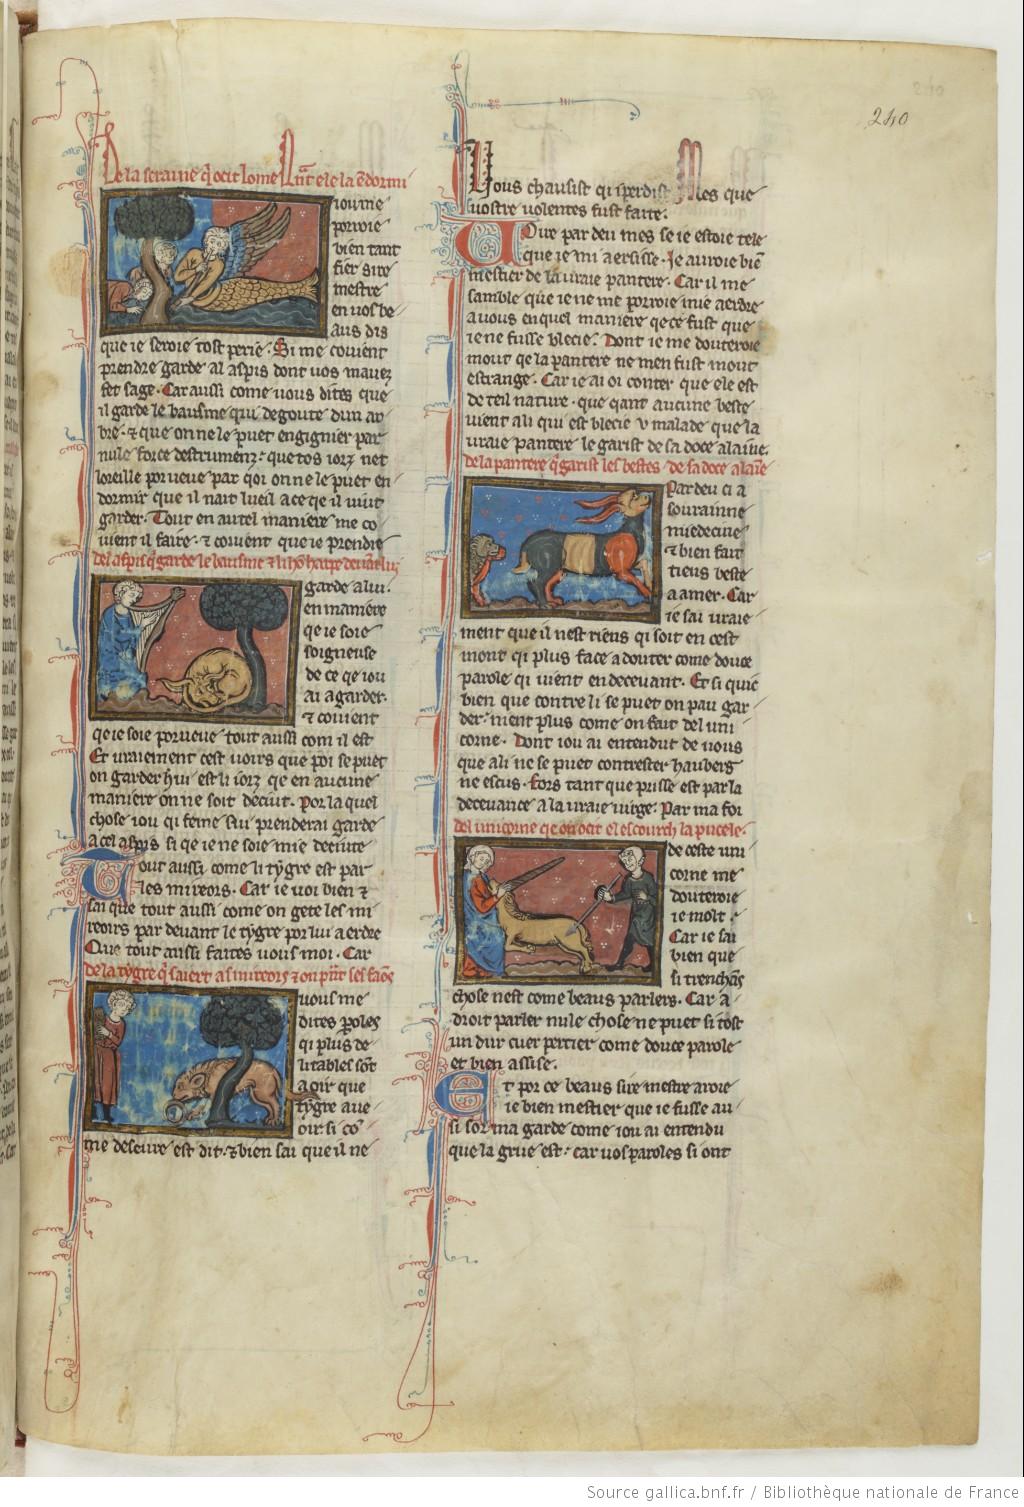 240
De la seraine q̃ ocit lome Q̃nt ele la ẽdormi
iou me
porroie
bien tant
fier sire
mestre
en vos be
aus dis
que ie seroie tost perie. Si me covient
prendre garde al aspis dont vos mavez
fet sage. Car aussi come vous dites que
il garde le bausme qui degoute dun ar
bre. ⁊ que on ne le puet engignier par
nule force destrumenz. que tos iorz net
loreille porveue par qoi on ne le puet en
dormir que il nait lueil a ce qe il vuut
garder. Tout en autel maniere me co
vient il faire. ⁊ covient que ie prendre
del aspis q̃ garde le bausme ⁊ li hõ harpe devant lui
garde a lui.
en maniere
qe ie soie
soigneuse
de ce qe iou
ai a garder.
⁊ covient
qe ie soie porveue tout aussi com il est
Et vraiement cest voirs que poi se puet
on garder hui est li iorz qe en aucune
maniere on ne soit deciut. Por la quel
chose iou qi feme sui prenderai garde
a cel aspis si qe ie ne soie mie deciute
Tout aussi come li tygre est par
les mireors. Car ie voi bien ⁊
sai que tout aussi come on gete les mi
reoirs par devant le tygre por lui aerdre
Que tout aussi faites vous moi. Car
de la tygre q̃ saert as mireors ⁊ on p̃nt ses faõs
vous me
dites poles
qi plus de
litables sõt
a oir que
tygre a ve
oir. si cõ
me deseure est dit. ⁊ bien sai que il ne
vous chausist qi sperdist Mes que
vostre volentes fust faite.
Que par deu mes se ie estoie tele
que ie mi aersisse. Je auroie biẽ
mestier de la vraie pantere. Car il me
samble que ie ne me porroie mie aerdre
a vous en quel maniere qe ce fust que
ie ne fusse blecie. Dont ie me douteroie
mout qe la pantere ne men fust mout
estrange. Car ie ai oi conter que ele est
de teil nature. que qant aucune beste
vient a li qui est blecie v malade que la
vraie pantere le garist de sa doce alaine.
de la pantere q̃ garist les bestes de sa doce alaĩe
Par deu ci a
souvrainne
miedecine
⁊ bien fait
tieus beste
a amer. Car
ie sai vraie
ment que il nest riens qi soit en cest
mont qi plus face a douter come douce
parole qi vient en decevant. Et si quic
bien que contre li se puet on pau gar
der. nient plus come on fait del uni
corne. Dont iou ai entendut de vous
que a li ne se puet contrester hauberg
ne escus. fors tant que prisse est par la
decevance a la vraie virge. Par ma foi
del unicorne qe on ocit el escourch la pucele.
de ceste uni
corne me
douteroie
ie molt.
Car ie sai
bien que
si trenchãs
chose nest come beaus parlers. Car a
droit parler nule chose ne puet si tost
un dur cuer percier come douce parole
et bien assise.
Et por ce beaus sire mestre aroie
ie bien mestier que ie fusse au
si sor ma garde come iou ai entendu
que la grue est. car vos paroles si ont
Source gallica.bnf.fr / Bibliothèque nationale de France